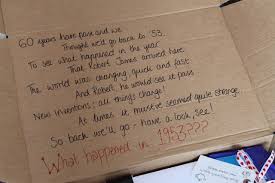 60 years have past and we
Thought we'd go back to '53.
To see what happened in the year
That Robert James arrived here.
The world was changing quick and fast
And Robert, he would see it pass
New inventions; all things change!
At times it must've seemed quite strange.
So back we'll go - have a look, see!
What happened in 1953???